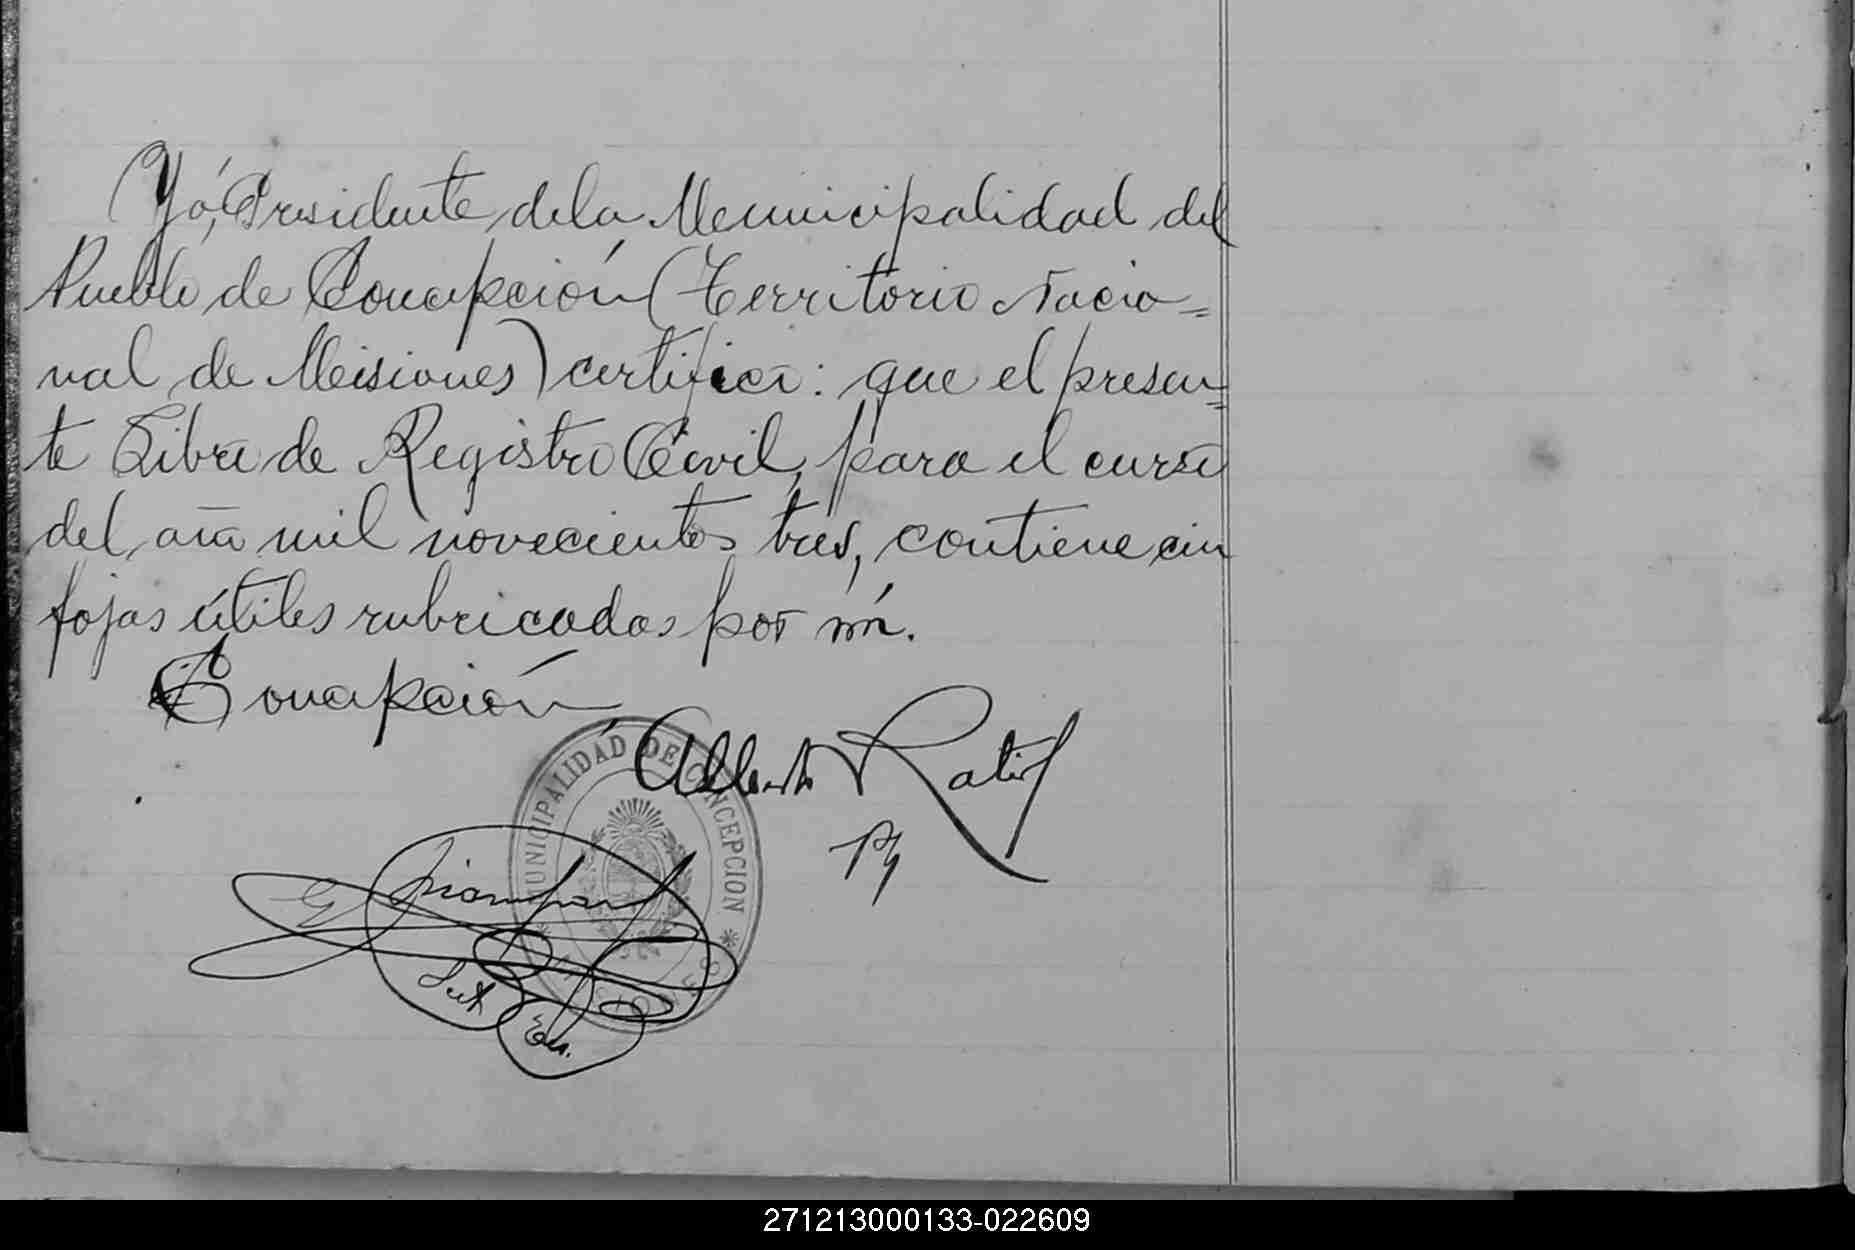 Yó, Presidente dela Municipalidad del
Pueblo de Concepción (Territorio Nacio=
nal de Misiones) certifico: que el presen=
te Libro de Registro Civil, para el curso
del año mil novecientos tres, contiene cin
fojas útiles rubricadas por mí.
Concepción
MUNICIPALIDAD DE CONCEPCION * MISIONES *
Alberto
271213000133-022609